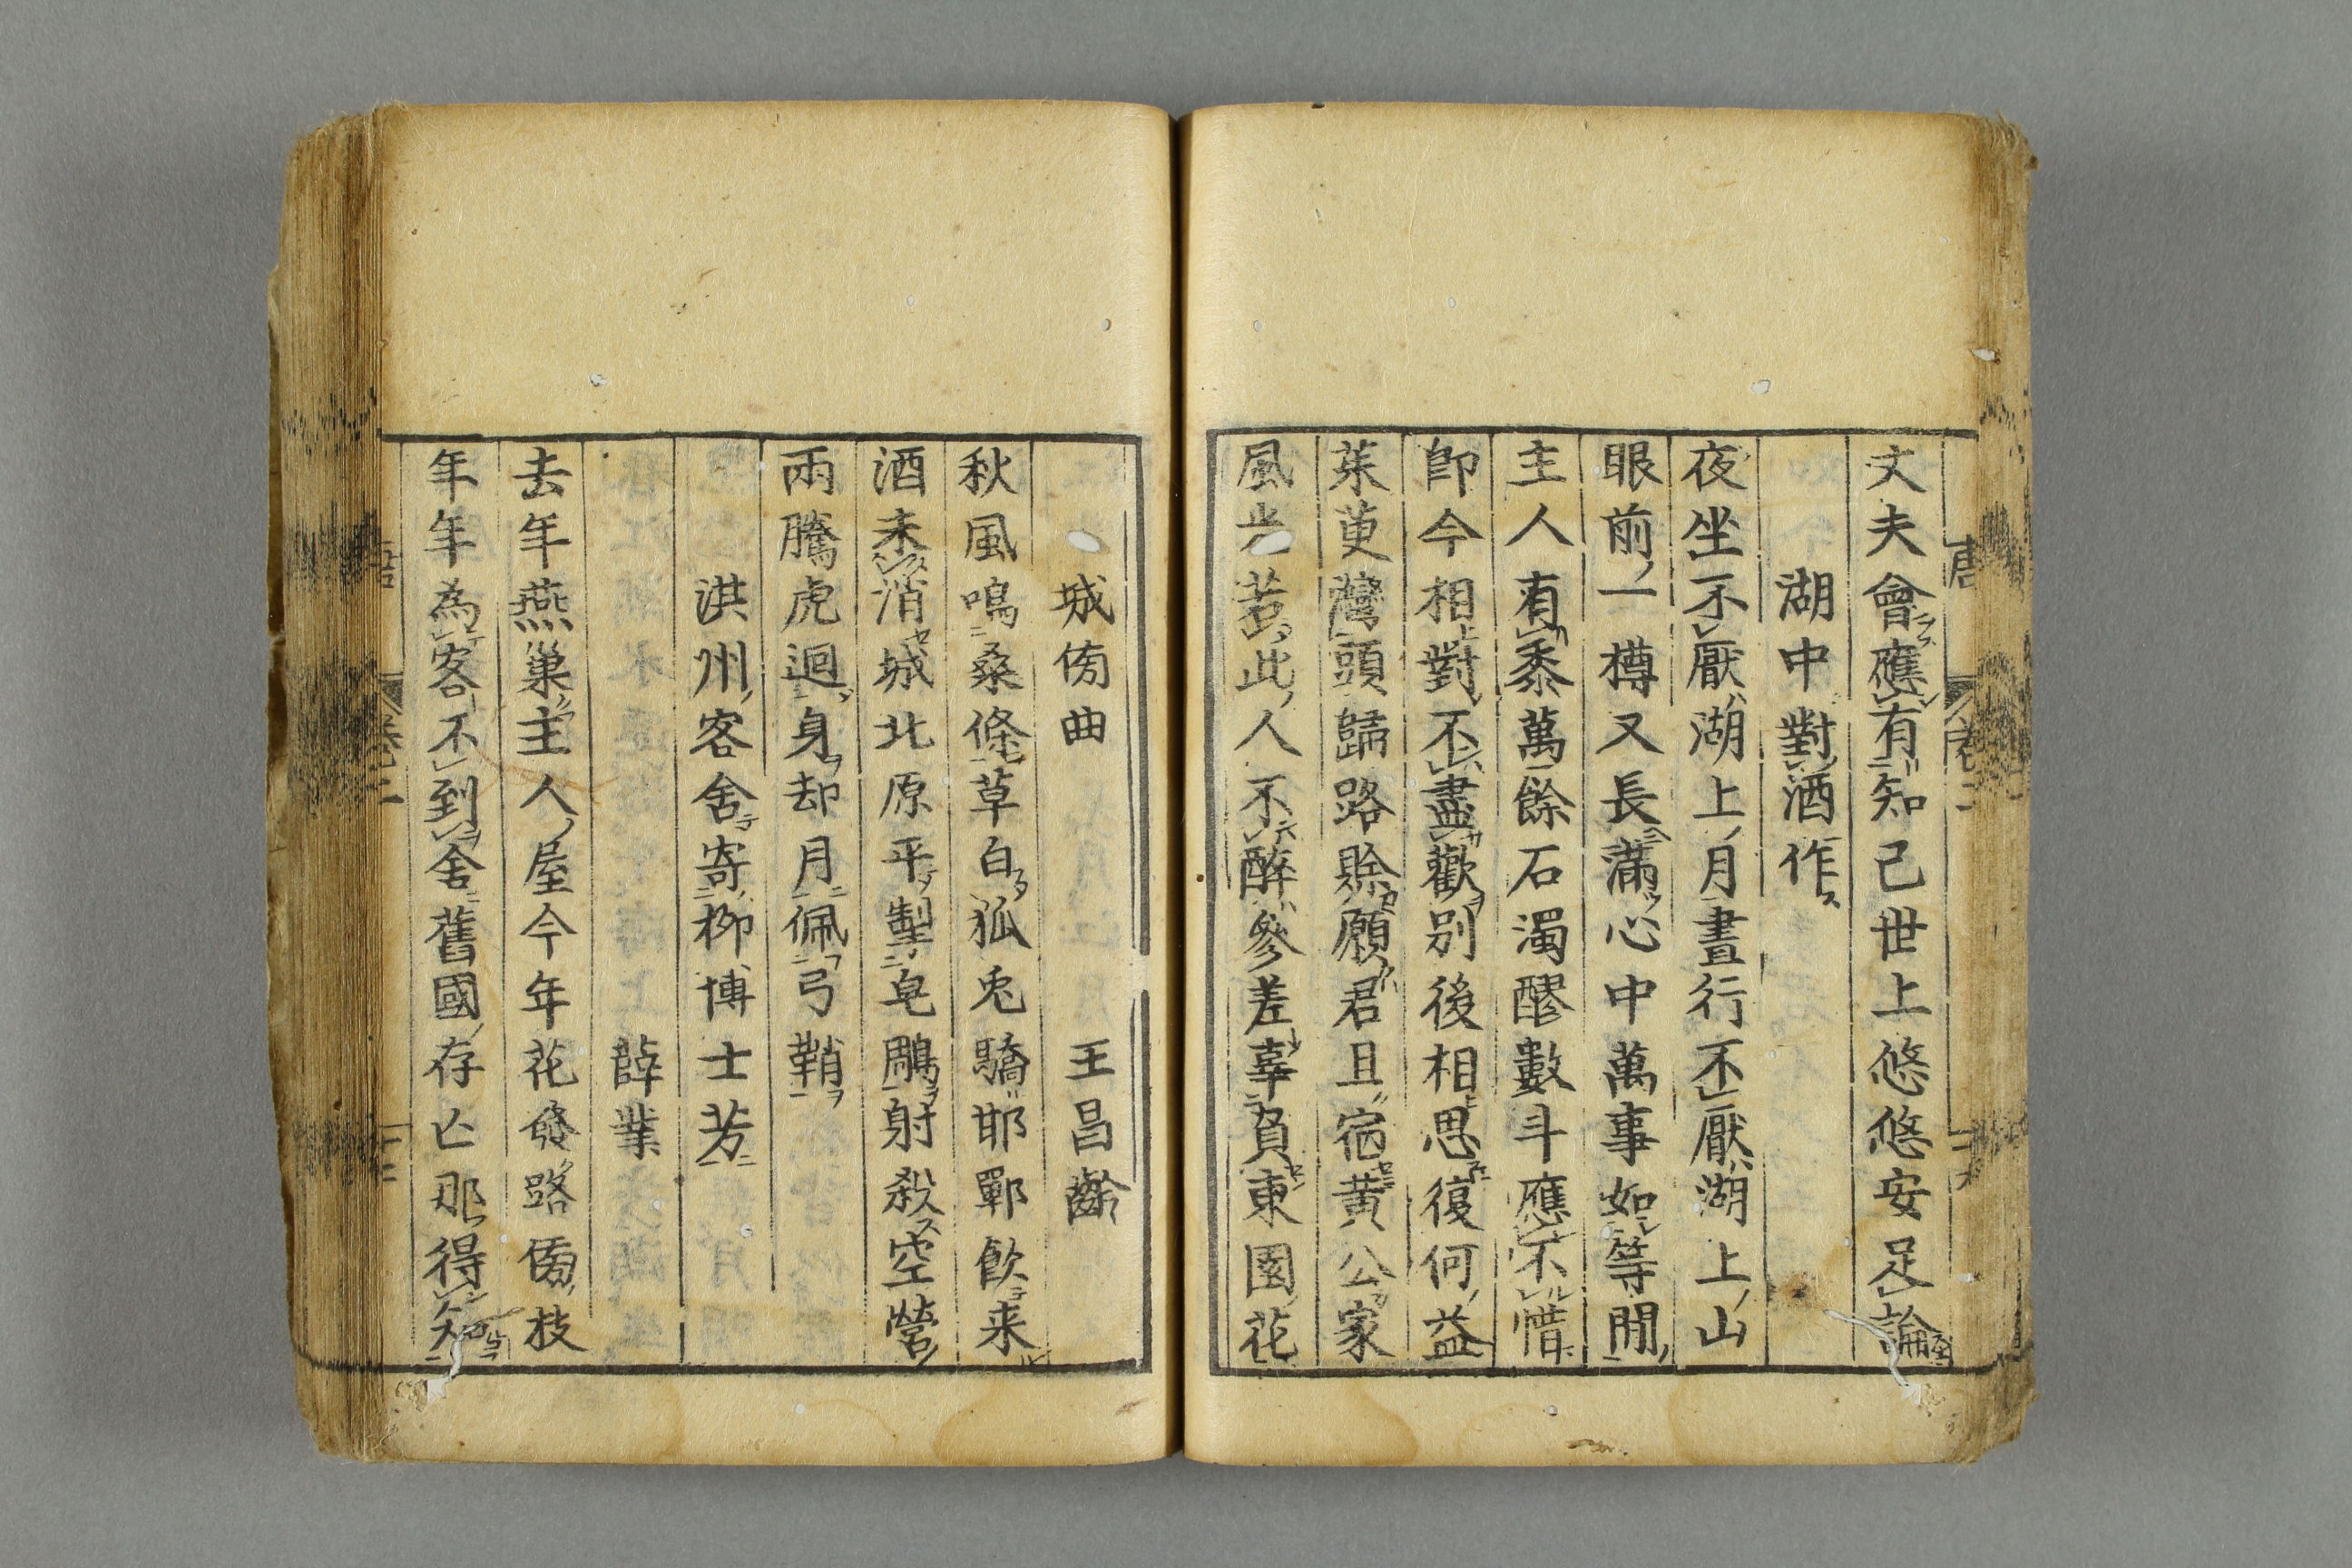 丈夫會應有知己世上悠悠安足論
湖中對酒作
夜坐不厭湖上月晝行不厭湖上山
眼前一樽又長滿心中萬事如等閒
主人有黍萬餘石濁醪數斗應不惜
即今相對不盡歡別後相思復何益
茱萸灣頭歸路賒願君且宿黃公家
風光若此人不醉參差辜負東園花
城傍曲
王昌齡
秋風鳴桑條草白狐兔驕邯鄲飲来
酒未消城北原平掣皂鵰射殺空營
兩騰虎迴身却月佩弓鞘
洪州客舍寄柳博士芳
薛業
去年燕巢主人屋今年花發路傍枝
年年為客不到舍舊國存亡那得知